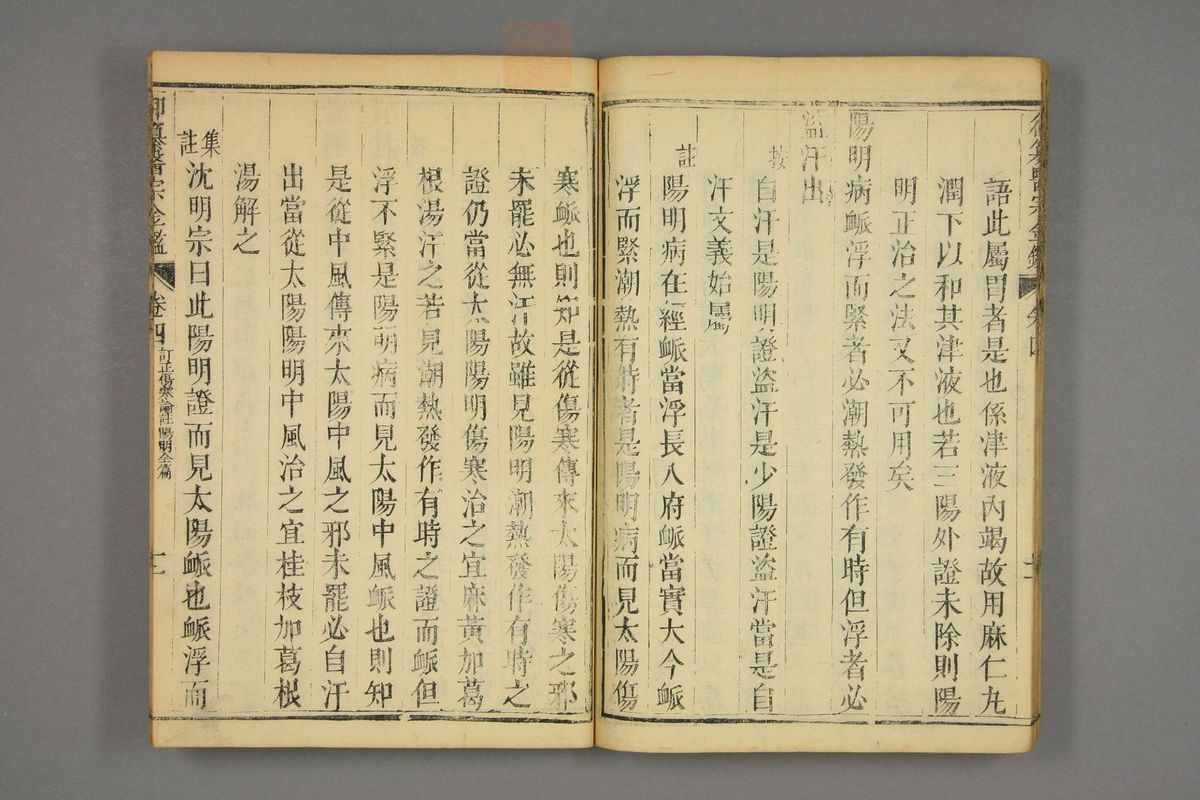 語此屬胃者是也係津液內竭故用麻仁丸
潤下以和其津液也若三陽外證未除則陽
明正治之法又不可用矣
陽明病脈浮而緊者必潮熱發作有時但浮者必
盜汗出
按
自汗是陽明證盜汗是少陽證盜汗當是自
汗文義始屬
註
陽明病在經脈當浮長入府脈當實大今脈
浮而緊潮熱有時者是陽明病而見太陽傷
寒脈也則知是從傷寒傳來太陽傷寒之邪
未罷必無汗故雖見陽明潮熱發作有時之
證仍當從太陽陽明傷寒治之宜麻黃加葛
根湯汗之若見潮熱發作有時之證而脈但
浮不緊是陽明病而見太陽中風脈也則知
是從中風傳來太陽中風之邪未罷必自汗
出當從太陽陽明中風治之宜桂枝加葛根
湯解之
集註
沈明宗曰此陽明證而見太陽脈也脈浮而
御纂醫宗金鑑
卷四
訂正傷寒論註陽明全篇